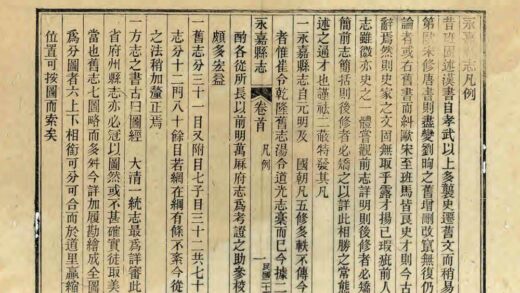 永嘉縣志凡例
昔班固述漢書自孝武以上多襲史遷舊文而稍易
第歐宋修唐書則盡變劉昫之舊增刪改竄無復仍
論者或右舊書而糾歐宋至班馬皆良史才則今古
辭焉然則史家之文固無取乎露才揚己瑕疵前人
志雖微亦史之一體嘗觀前志詳明則後修者必矯
簡前志簡括則後修者必矯之以詳此相勝之常態
述之通才也謹祛二敝特發其凡
一永嘉縣志自元明及 國朝凡五修多軼不傳今
者惟崔令乾隆舊志湯令道光志稾而已今據二
永嘉縣志 卷首 凡例 一 民國二十
酌各從所長以前明萬厤府志為考證之助參校
頗多宏益
一舊志分三十一目又附目七子目三十二共七十
志分十二門八十餘目若網在綱有條不紊今從
之法稍加釐正焉
一方志之書古曰圖經 大清一統志最為詳審此
省府州縣志亦必冠以圖然或不甚確實徒取美
當也舊志七圖略而多舛今詳加履勘繪成全圖
為分圖者六上下相銜可分可合而於道里贏縮
位置可按圖而索矣